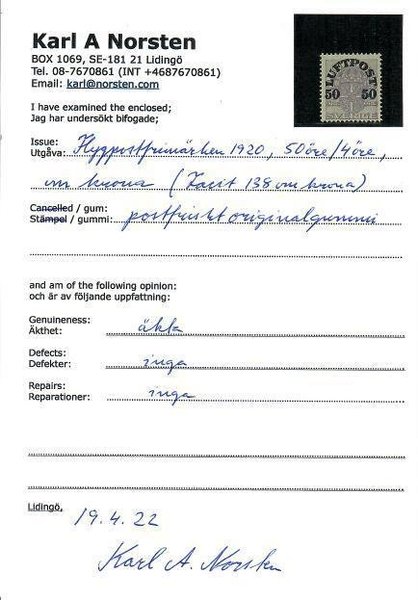 Karl A Norsten
BOX 1069, SE-181 21 Lidingö
Tel. 08-7670861 (INT +4687670861)
Email: karl@norsten.com
LUFTPOST
50 50
I have examined the enclosed;
Jag har undersökt bifogade;
Issue:
Utgåva: Flygpostfrimärken 1920, 50 öre/4 öre,
vm krona (Facit 138 vm krona)
Cancelled / gum:
Stämpel / gummi: postfriskt originalgummi
and am of the following opinion:
och är av följande uppfattning:
Genuineness:
Äkthet: äkta
Defects:
Defekter: inga
Repairs:
Reparationer: inga
Lidingö, 19.4.22
Karl A. Norsten